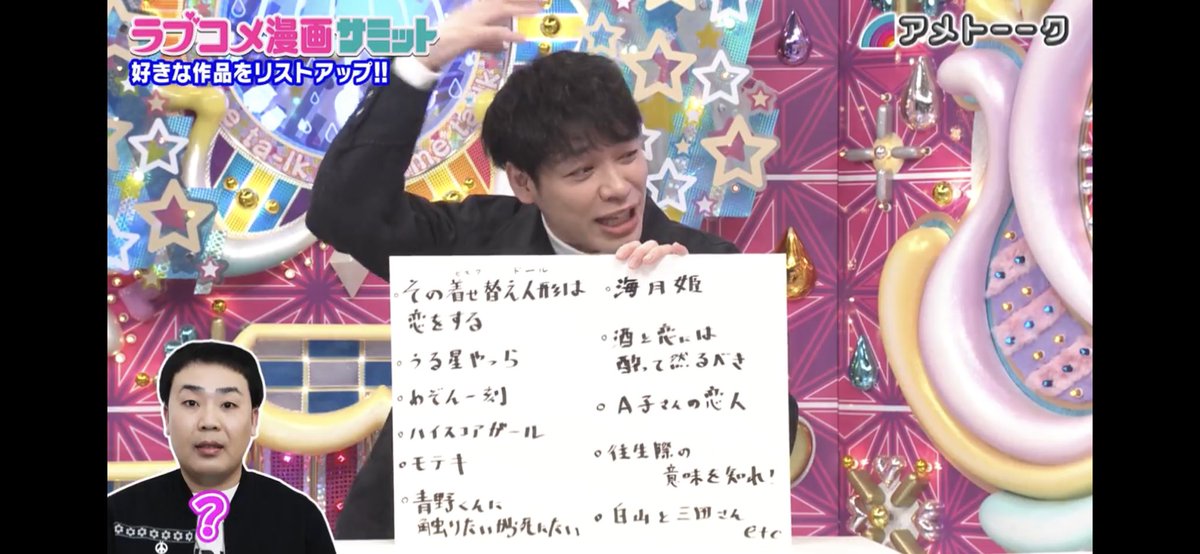 ラブコメ漫画サミット
好きな作品をリストアップ!!
アメトーーク
ame talk
ビスク ドール
。その着せ替え人形は
恋をする
。うる星やつら
。めぞん一刻
。ハイスコアガール
。モテキ
。青野くんに
触りたいから死にたい
。海月姫
。酒と恋には
酔って然るべき
。A子さんの恋人
。往生際の
意味を知れ!
。白山と三田さん
etc
?